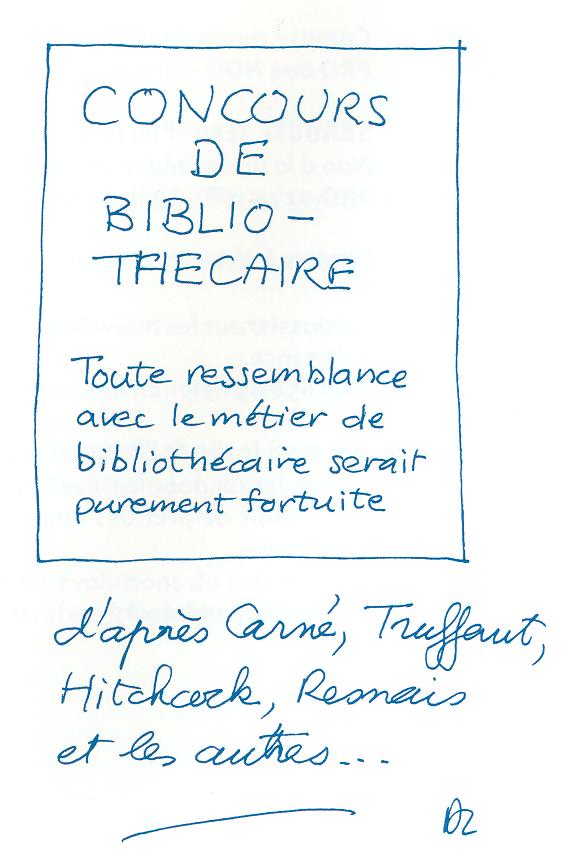 CONCOURS
DE
BIBLIO-
THECAIRE
Toute ressemblance
avec le métier de
bibliothécaire serait
purement fortuite
d'après Carné, Truffaut,
Hitchcock, Resnais
et les autres...